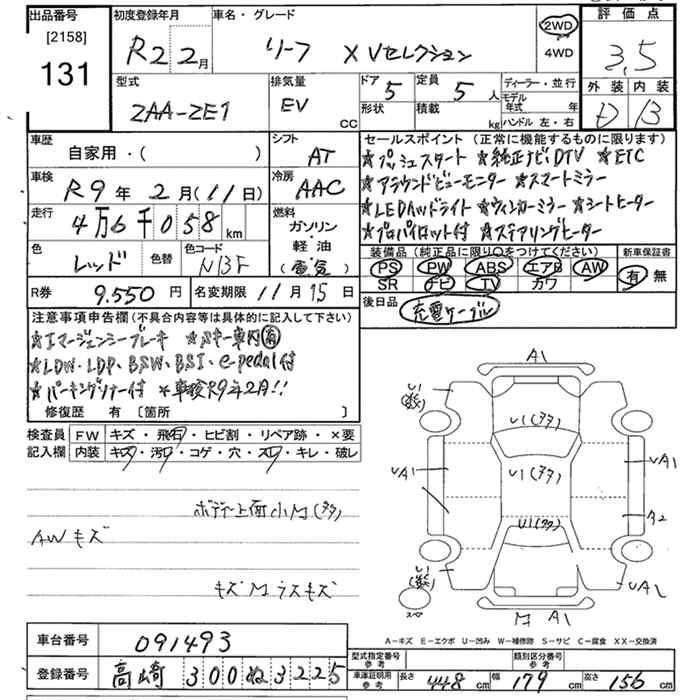 出品番号 初度登録年月 車名・グレード 評価点
[2158] R2 2月 リーフ X Vセレクション 2WD 4WD 3.5
131
型式 排気量 ドア 定員 ディーラー・並行 外装 内装
ZAA-ZE1 EV CC 5 5人 モデル年式 年 D B
形状 積載 kg ハンドル 左・右
車歴 シフト セールスポイント(正常に機能するものに限ります)
自家用・( ) AT ★プッシュスタート ★純正ナビDTV ★ETC
車検 冷房 ★アラウンドビューモニター ★スマートミラー
R9年 2月(11日) AAC ★LEDヘッドライト ★ウィンカーミラー ★シートヒーター
走行 燃料 ★プロパイロット付 ★ステアリングヒーター
4万6千058km ガソリン・軽・油(電気)
色 色替 色コード 装備品(純正品に限り○をつけてください) 新車保証書
レッド NBF PS PW ABS エアB AW 有 無
SR ナビ TV カワ
R券 9.550円 名変期限 11月15日 後日品 充電ケーブル
注意事項申告欄(不具合内容等は具体的に記入して下さい)
★エマージェンシーブレーキ ★スキー車内有
★LDW・LDP、BSW、BSI、e-pedal付
★パーキングソナー付 ★車検R9年2月!!
修復歴 有 [箇所 ]
検査員 FW キズ・飛石・ヒビ割・リペア跡・×要
記入欄 内装 キズ・汚れ・コゲ・穴・スレ・キレ・破レ
ボディー上面小凹(多タ)
AWキズ
キズ凹ラスキズ
A1
U1
U1(多タ)
UA1 U1(多タ) UA1
U1(多タ) A2
U1 UA1
スペア
凹 A1
A-キズ E-エクボ U-凹み W-補修跡 S-サビ C-腐食 XX-交換済
車台番号 091493
型式指定番号 参考 類別区分番号 参考
登録番号 高崎 300 ぬ 3225
車庫証明用 参考 長さ 448cm 幅 179cm 高さ 156cm